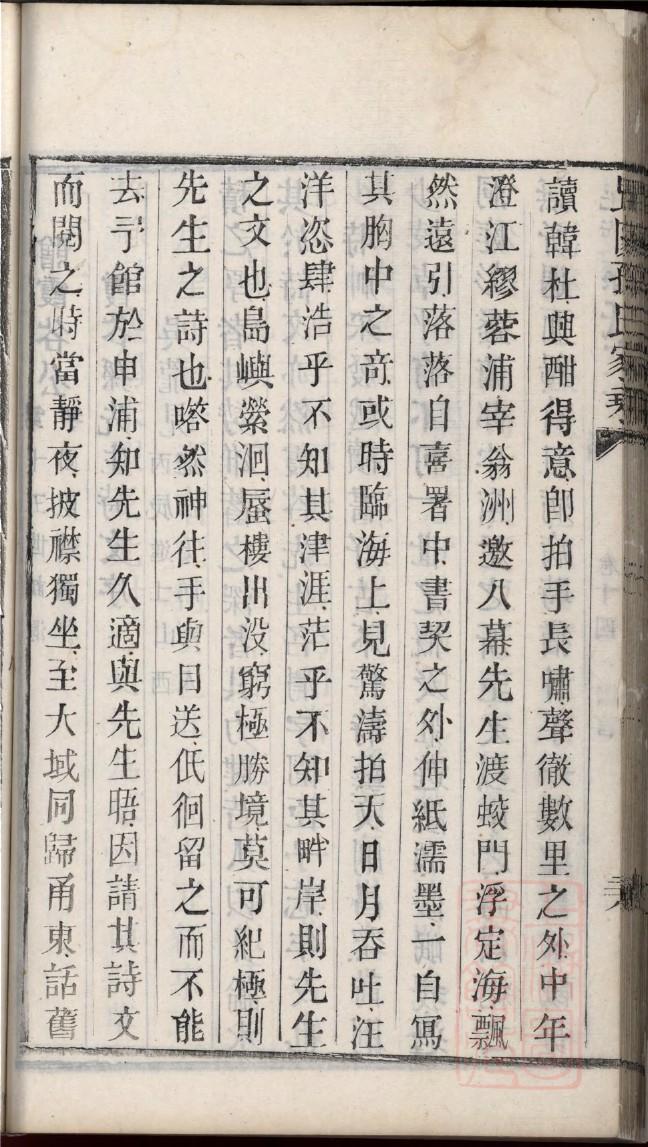 讀韓杜興酣得意卽拍手長嘯聲徹數里之外中年
澄江繆蓉浦宰翁洲邀入幕先生渡蛟門浮定海飄
然遠引落落自喜署中書契之外伸紙濡墨一自寫
其胸中之奇或時臨海上見驚濤拍天日月吞吐汪
洋恣肆浩乎不知其津涯茫乎不知其畔岸則先生
之文也島嶼縈洄蜃樓出没窮極勝境莫可紀極則
先生之詩也嗒然神往手與目送低徊留之而不能
去予館於申浦知先生久適與先生晤因請其詩文
而閱之時當靜夜披襟獨坐至大域同歸甬東話舊